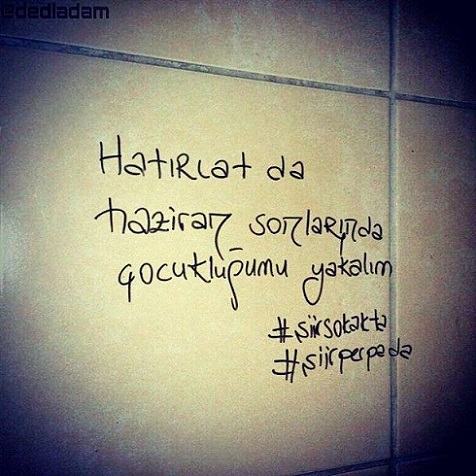 @dedladam
Hatırlat da
haziran sonlarında
çocukluğumu yakalım
#şiirsokakta
#şiirperpeda